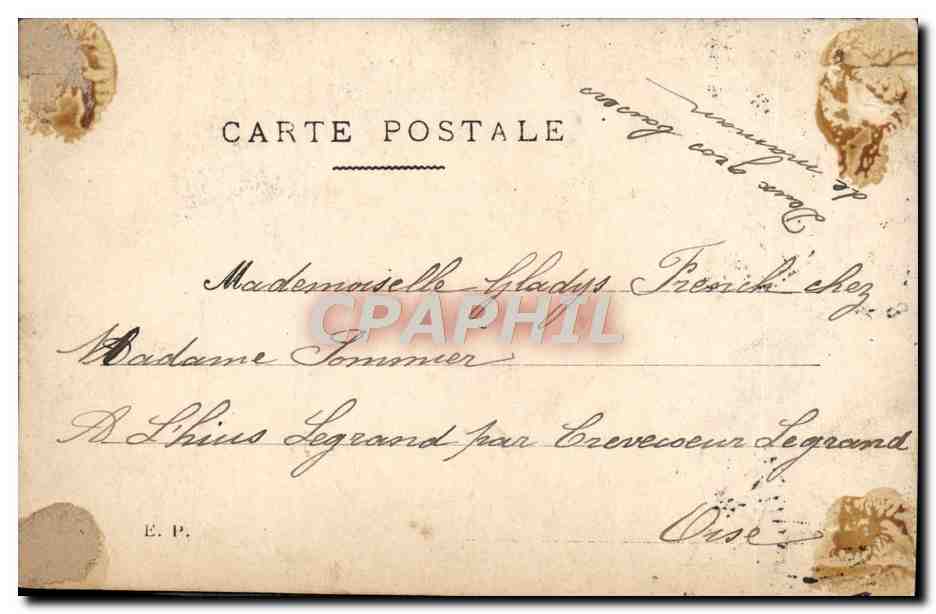 CARTE POSTALE
Deux gros baisers
de maman
Mademoiselle Gladys French chez
Madame Pommier
A L'hius Legrand par Crevecoeur Legrand
Oise
E. P.
CPAPHIL